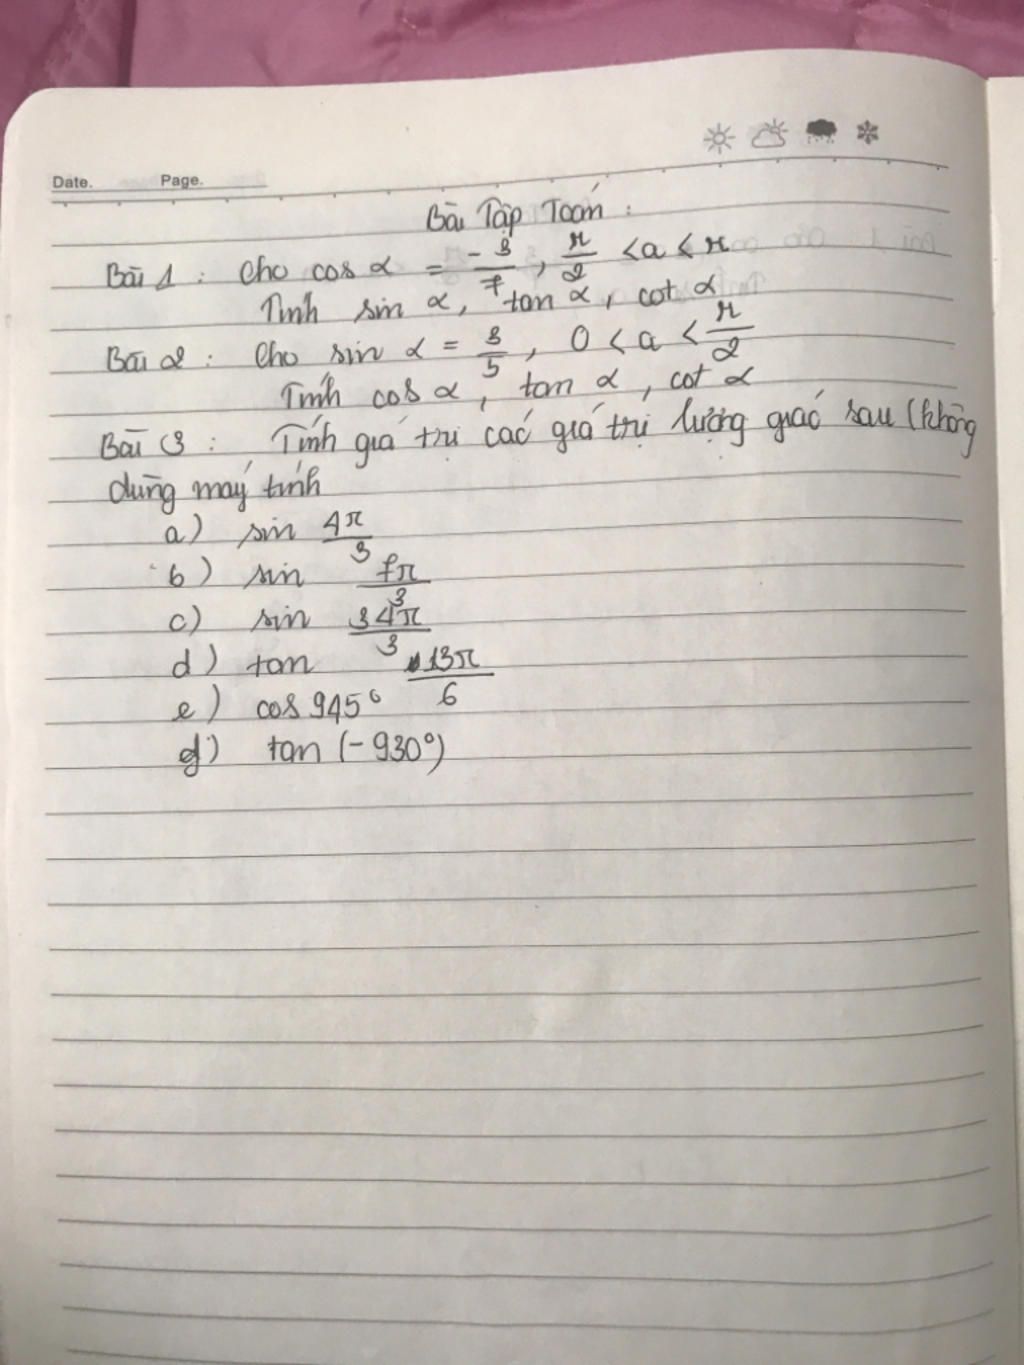 Date. Page.
Bài Tập Toán :
Bài 1 : Cho cos α = -3/7 , π/2 < a < π
Tính sin α, tan α, cot α
Bài 2 : Cho sin α = 3/5 , 0 < a < π/2
Tính cos α, tan α, cot α
Bài 3 : Tính giá trị các giá trị lượng giác sau (không
dùng máy tính
a) sin 4π/3
b) sin 7π/3
c) sin 34π/3
d) tan 13π/6
e) cos 945°
g) tan (-930°)